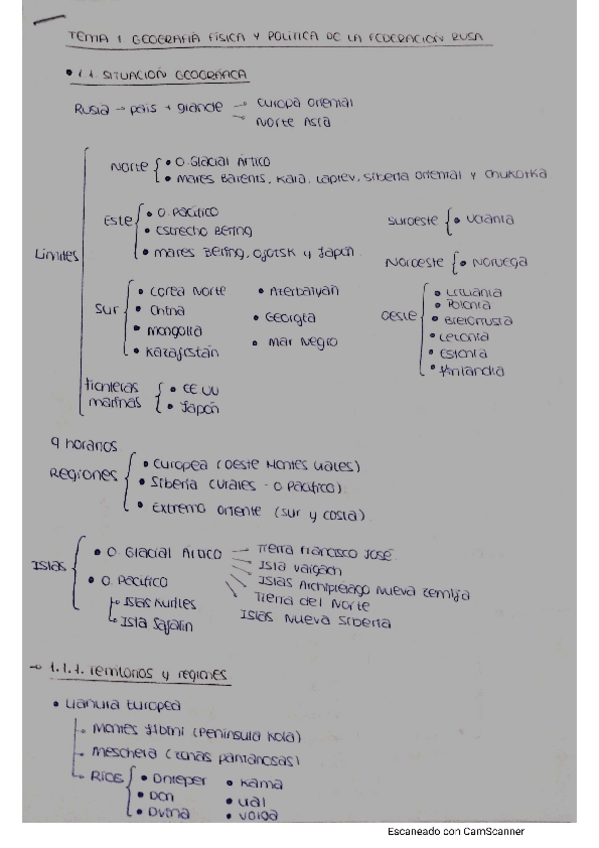 TEMA 1. GEOGRAFÍA FÍSICA Y POLÍTICA DE LA FEDERACIÓN RUSA
• 1.1. SITUACIÓN GEOGRÁFICA
Rusia → país + grande → Europa Oriental
→ Norte Asia
Límites
Norte { • O. Glacial Ártico
• mares Barents, Kara, Laptev, Siberia Oriental y Chukotka
Este { • O. Pacífico
• Estrecho Bering
• mares Bering, Ojotsk y Japón
Suroeste { • Ucrania
Noroeste { • Noruega
Sur { • Corea Norte
• China
• Mongolia
• Kazajistán
• Azerbaiyán
• Georgia
• Mar Negro
Oeste { • Lituania
• Polonia
• Bielorrusia
• Letonia
• Estonia
• Finlandia
fronteras marinas { • EE UU
• Japón
9 horarios
Regiones { • Europea (oeste Montes Urales)
• Siberia (Urales - O. Pacífico)
• Extremo oriente (sur y costa)
Islas { • O. Glacial Ártico → Tierra Francisco José
Isla Vaigach
Islas Archipiélago Nueva Zemlja
Tierra del Norte
Islas Nueva Siberia
• O. Pacífico
↳ Islas Kuriles
↳ Isla Sajalín
→ 1.1.1. Territorios y regiones
• Llanura Europea
→ Montes Jibini (Península Kola)
→ Meschera (zonas pantanosas)
→ Ríos { • Dnieper
• Don
• Dvina
• Kama
• Ural
• Volga
Escaneado con CamScanner